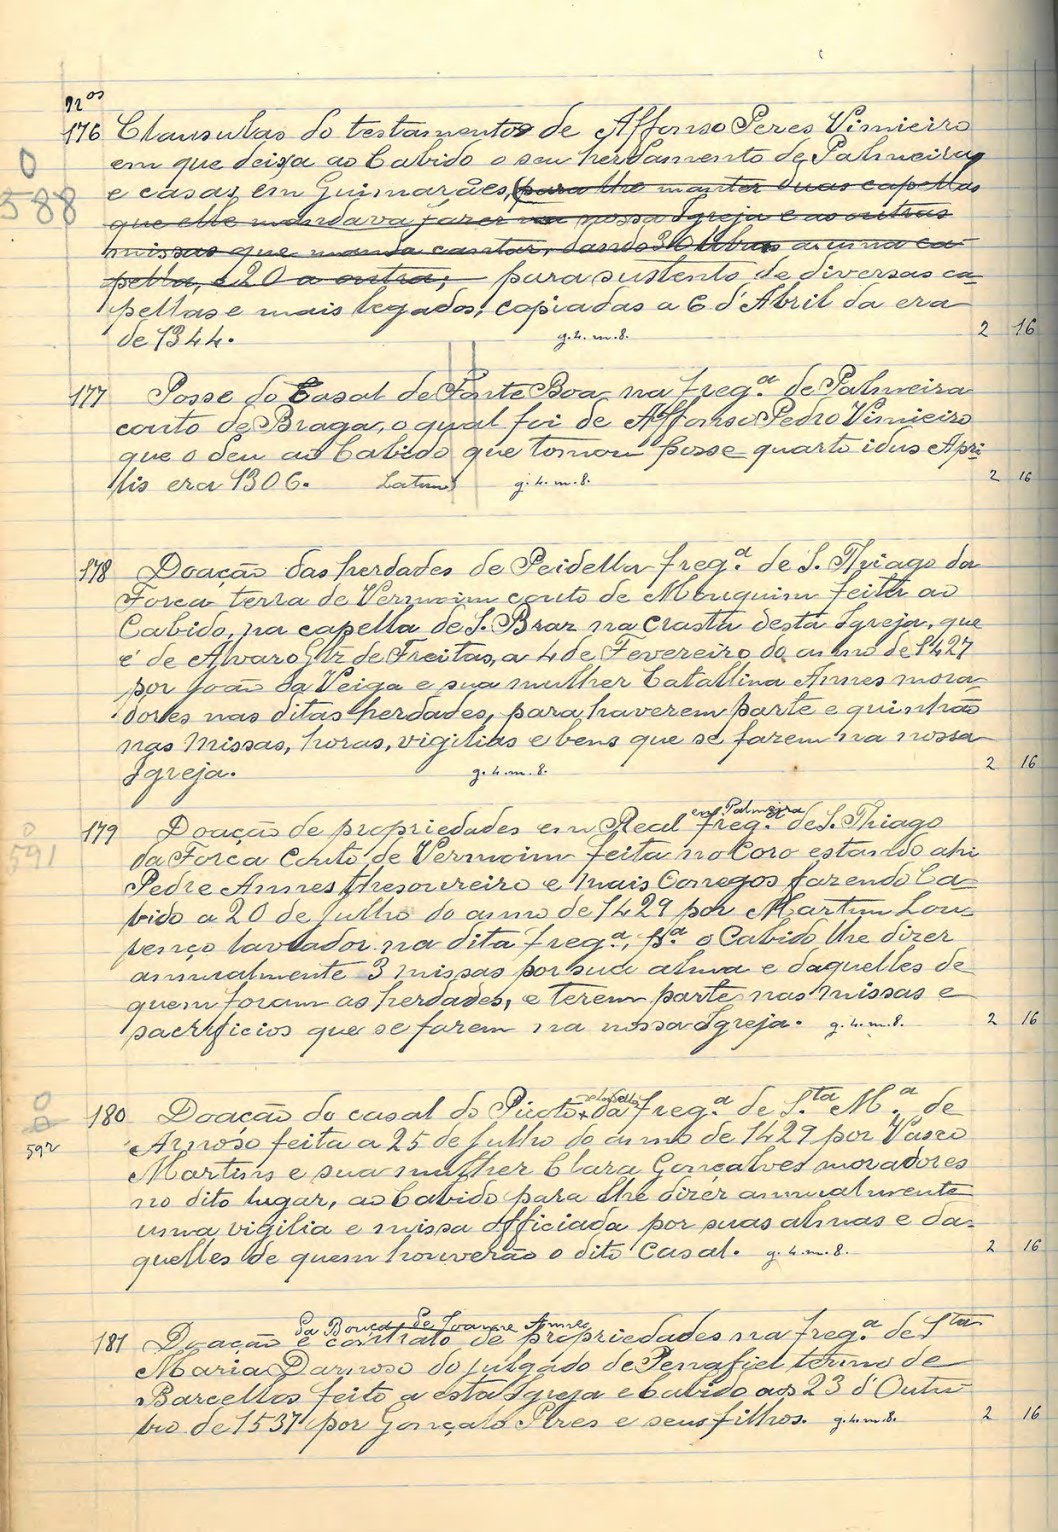 nos
176 Clausulas do testamento de Affonso Peres Vimieiro
em que deixa ao Cabido o seu herdamento de Palmeira
0
588
e casas, em Guimarães, (para lhe manter duas capellas
que elle mandava fazer na nossa Igreja e as outras
missas que manda cantar, dando 30 libras a uma ca-
pella, e 20 a outra; para sustento de diversas ca-
pellas e mais legados; copiadas a 6 d'Abril da era
de 1344. g. 4. m. 8. 2 16
177 Posse do Casal de Fonte Boa, na freg.a de Palmeira
couto de Braga, o qual foi de Affonso Pedro Vimieiro
que o deu ao Cabido que tomou posse quarto idus Apri-
lis era 1306. Latim g. 4. m. 8. 2 16
178 Doação das herdades de Peidella freg.a de S. Thiago da
Forca terra de Vermoim couto de Mouquim feita ao
Cabido, na capella de S. Braz na crasta desta Igreja, que
é de Alvaro Glz de Freitas, a 4 de Fevereiro do anno de 1427
por João da Veiga e sua mulher Catallina Annes mora-
dores nas ditas herdades, para haverem parte e quinhão
nas missas, horas, vigilias e bens que se fazem na nossa
Igreja. g. 4. m. 8. 2 16
em Palmeira
0
591
179 Doação de propriedades em Real freg.a de S. Thiago
da Forca Couto de Vermoim feita no Coro estando ahi
Pedre Annes thesoureiro e mais Conegos fazendo Ca-
bido a 20 de Julho do anno de 1429 por Martim Lou-
renço lavrador na dita freg.a, p.a o Cabido lhe dizer
annualmente 3 missas por sua alma e daquelles de
quem foram as herdades, e terem parte nas missas e
sacrificios que se fazem na nossa Igreja. g. 4. m. 8. 2 16
592
180 Doação do casal do Picoto da freg.a de S.ta M.a de
Arnoso feita a 25 de Julho do anno de 1429 por Vasco
Martins e sua mulher Clara Gonçalves moradores
no dito lugar, ao Cabido para lhe dizer annualmente
uma vigilia e missa officiada por suas almas e da-
quelles de quem houverão o dito Casal. g. 4. m. 8. 2 16
da Bouça de Joanne Annes
181 Doação e contrato de propriedades na freg.a de S.ta
Maria Darnoso do julgado de Penafiel termo de
Barcellos feito a esta Igreja e Cabido aos 23 d'Outu-
bro de 1537 por Gonçalo Pires e seus filhos. g. 4. m. 8. 2 16